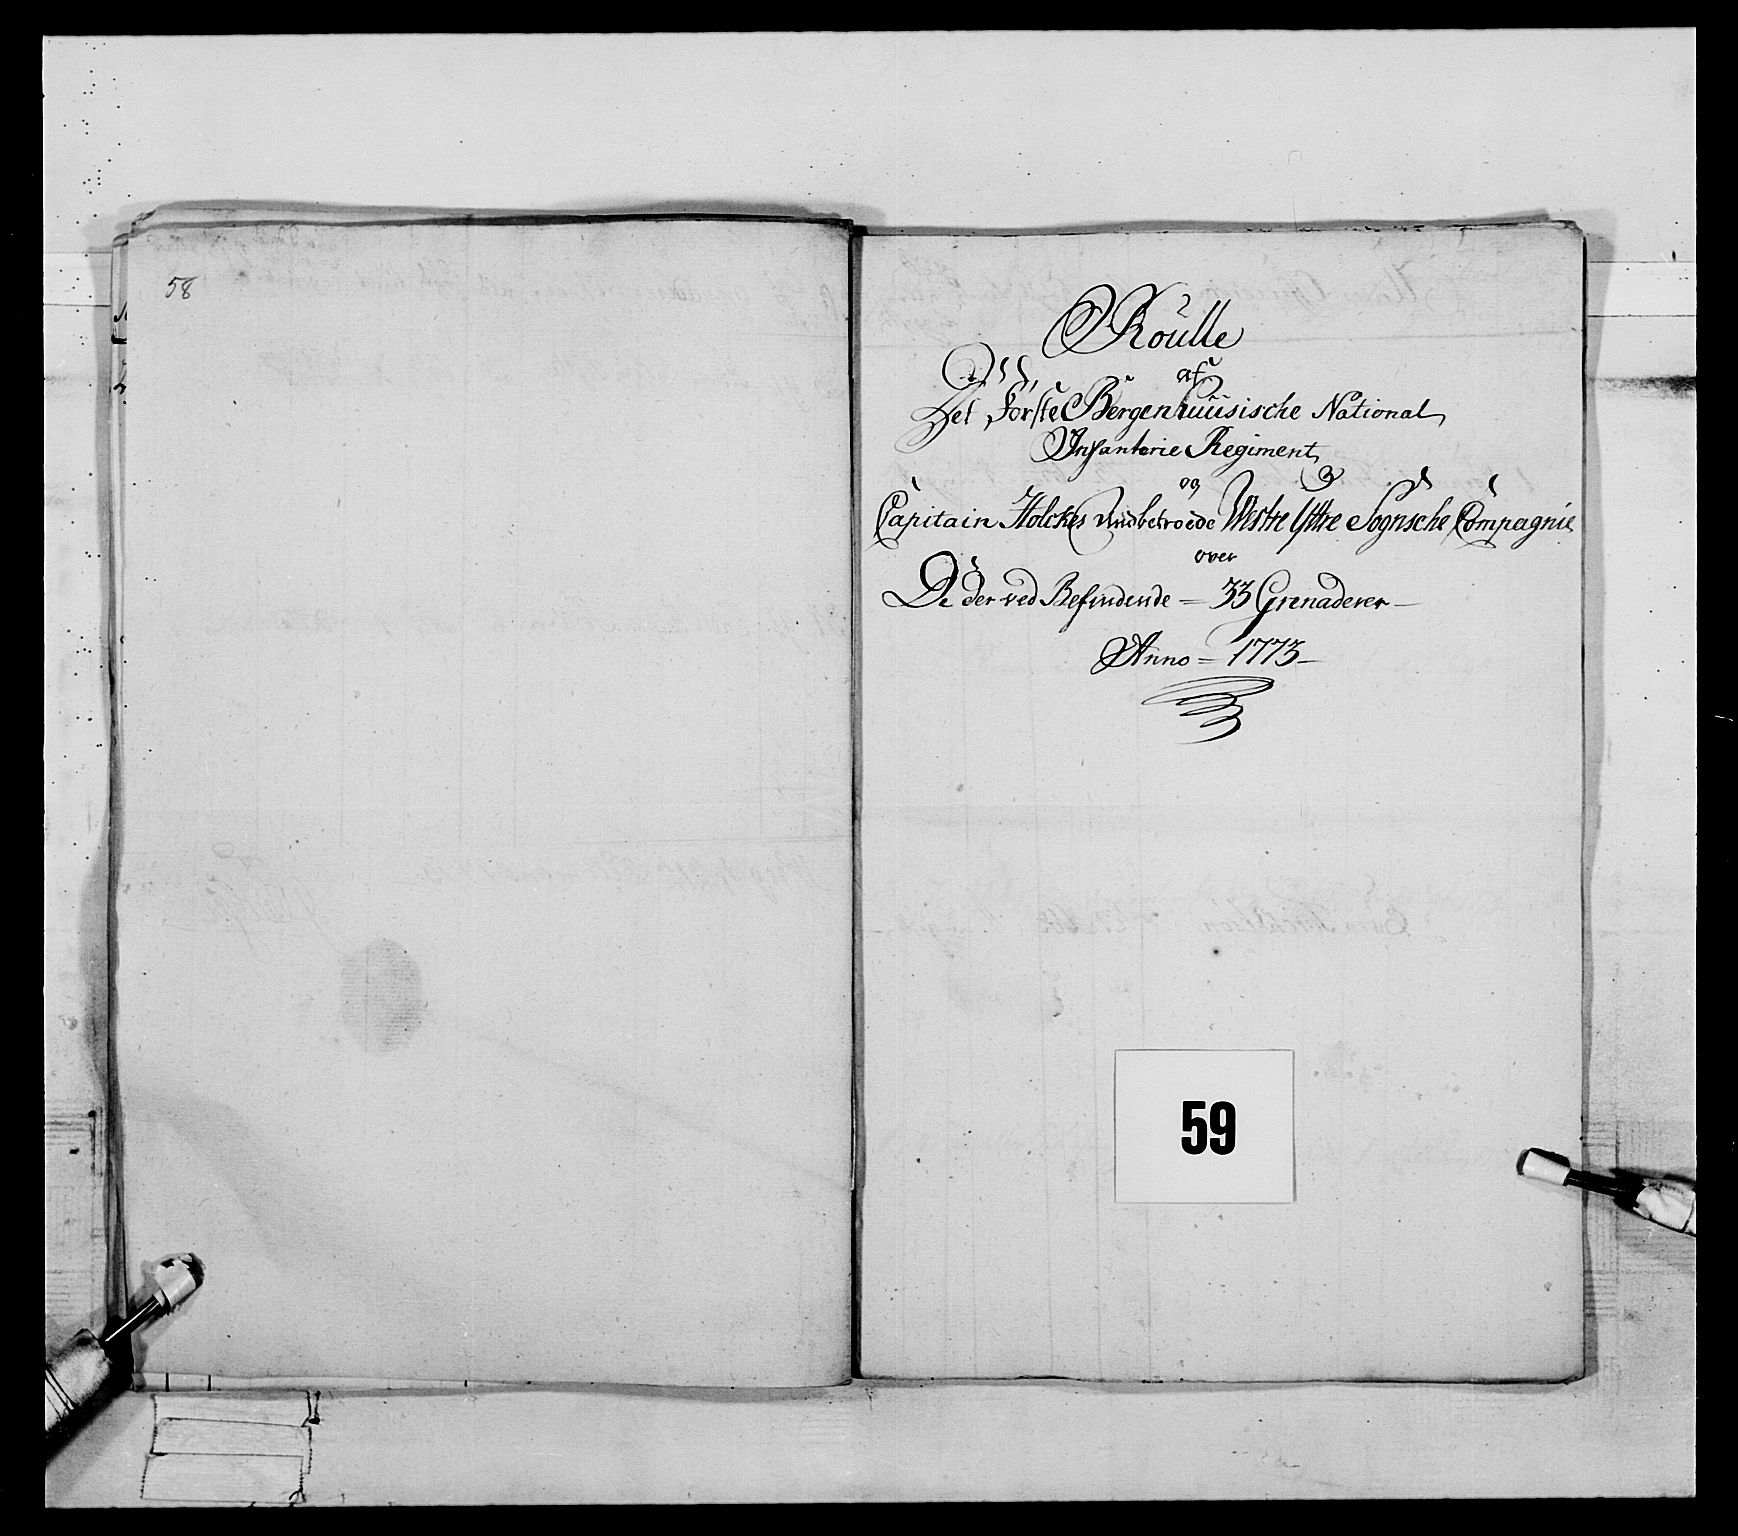 58
Roulle
af
Det Første Bergenhuusische National
Infanterie Regiment
og
Capitain Holckes Andbetroede Westre Yttre Sognsche Compagnie
over
De der ved Befindende = 33 Grenaderer
Anno = 1773
59